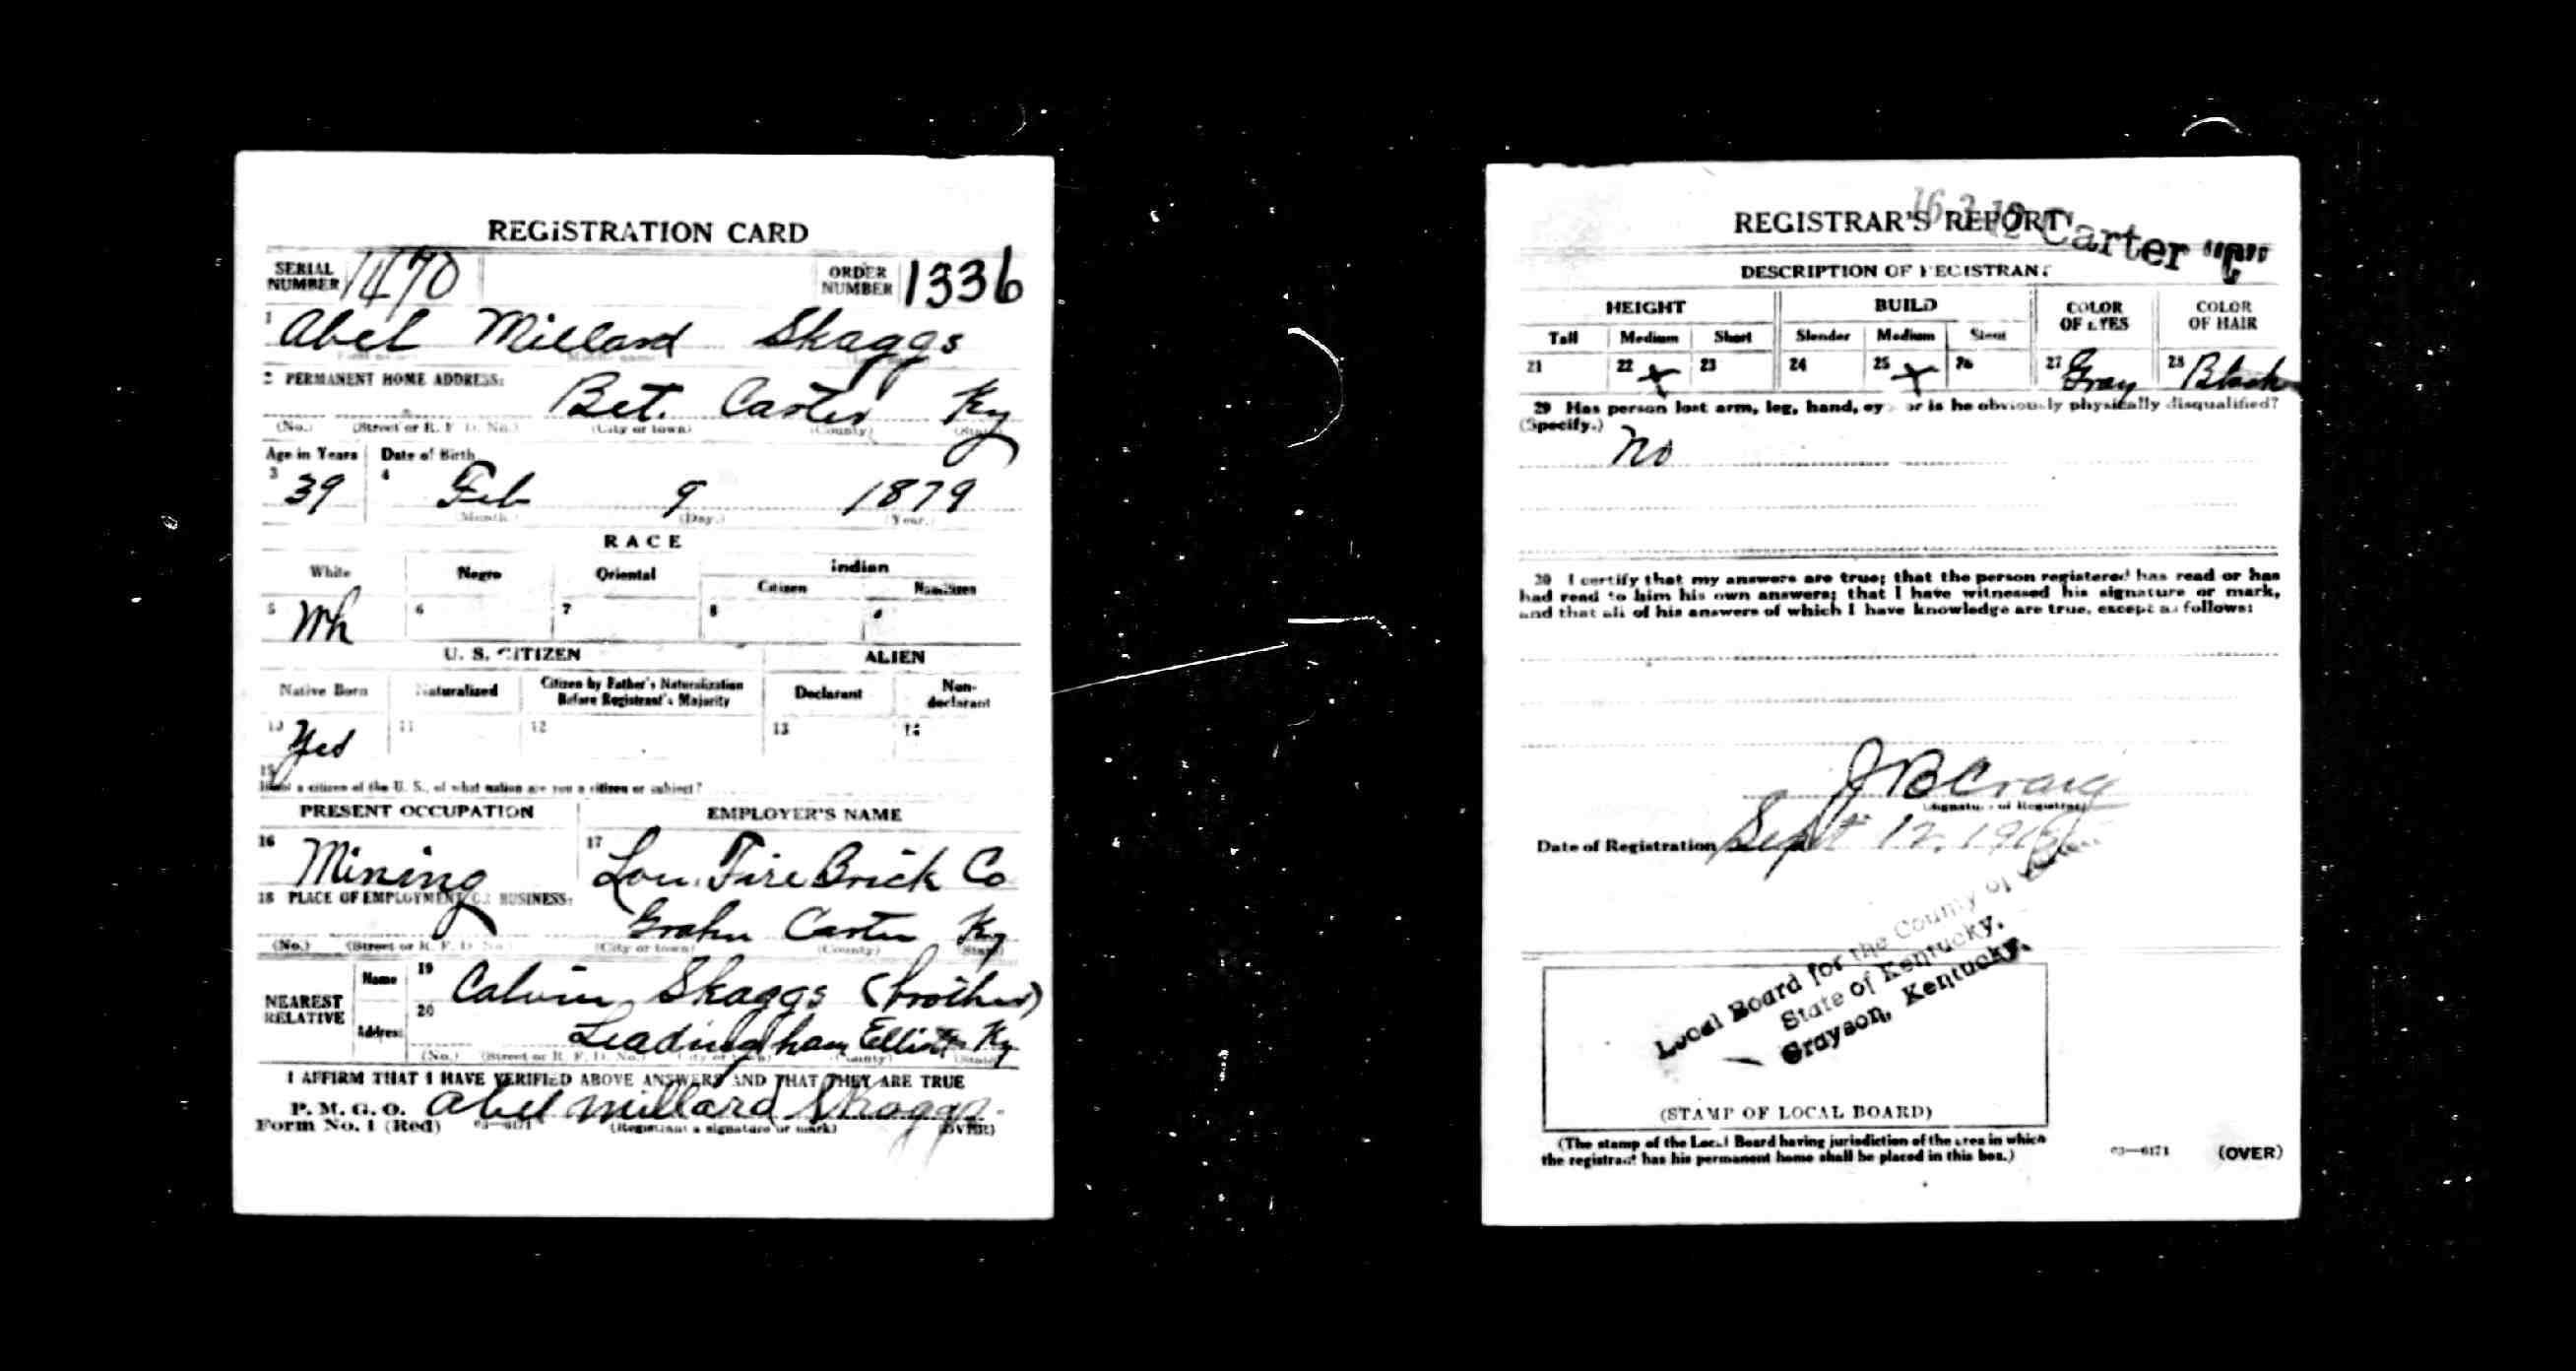 REGISTRATION CARD
SERIAL NUMBER 1470 ORDER NUMBER 1336
1 Abel Millard Skaggs
2 PERMANENT HOME ADDRESS:
Bet. Carter Ky
(No.) (Street or R. F. D. No.) (City or town) (County) (State)
Age in Years Date of Birth
3 39 4 Feb 9 1879
(Month.) (Day.) (Year.)
RACE
White Negro Oriental Indian
Citizen Noncitizen
5 Wh 6 7 8 9
U. S. CITIZEN ALIEN
Native Born Naturalized Citizen by Father's Naturalization Before Registrant's Majority Declarant Non-declarant
10 Yes 11 12 13 14
15
If not a citizen of the U. S., of what nation are you a citizen or subject?
PRESENT OCCUPATION EMPLOYER'S NAME
16 Mining 17 Lou. Fire Brick Co
18 PLACE OF EMPLOYMENT OR BUSINESS:
Grahn Carter Ky
(No.) (Street or R. F. D. No.) (City or town) (County) (State)
NEAREST RELATIVE Name 19 Calvin Skaggs (brother)
Address 20 Leadingham Elliott Ky
(No.) (Street or R. F. D. No.) (City or town) (County) (State)
I AFFIRM THAT I HAVE VERIFIED ABOVE ANSWERS AND THAT THEY ARE TRUE
P. M. G. O. Abel Millard Skaggs
Form No. 1 (Red) 03—6171 (Registrant's signature or mark) (OVER)
REGISTRAR'S REPORT
Carter "C"
DESCRIPTION OF REGISTRANT
HEIGHT BUILD COLOR OF EYES COLOR OF HAIR
Tall Medium Short Slender Medium Stout
21 22 x 23 24 25 x 26 27 Gray 28 Black
29 Has person lost arm, leg, hand, eye, or is he obviously physically disqualified?
(Specify.) No
30 I certify that my answers are true; that the person registered has read or has
had read to him his own answers; that I have witnessed his signature or mark,
and that all of his answers of which I have knowledge are true, except as follows:
J B Craig
(Signature of Registrar)
Date of Registration Sept 12, 1918
Local Board for the County of
State of Kentucky.
Grayson, Kentucky.
(STAMP OF LOCAL BOARD)
(The stamp of the Local Board having jurisdiction of the area in which
the registrant has his permanent home shall be placed in this box.)
03—6171 (OVER)